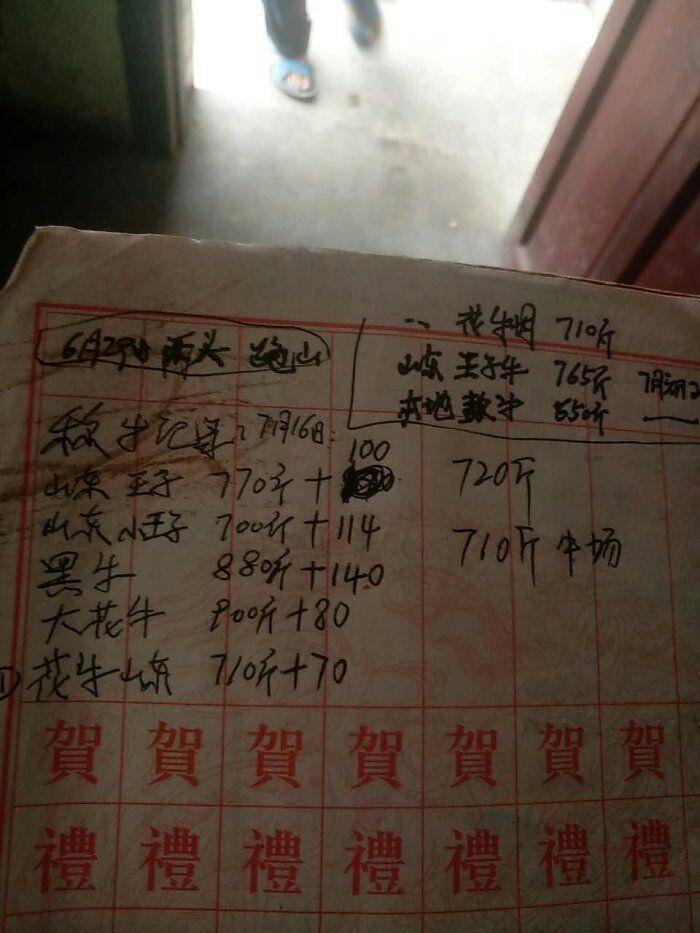 6月29日 两头
花牛姻 710斤
山东 王子牛 765斤
本地 牛 550斤
称牛记录：7月16日：
山东 王子 770斤+100 720斤
山东小王子 700斤+114 710斤 牛场
黑牛 880斤+140
大花牛 900斤+80
① 花牛山东 710斤+70
賀 賀 賀 賀 賀 賀 賀
禮 禮 禮 禮 禮 禮 禮